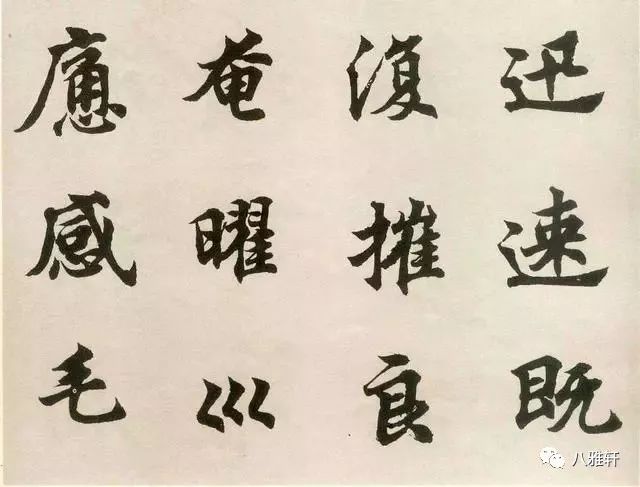 迅速既
復摧良
奄曜巛
應感毛
八雅轩